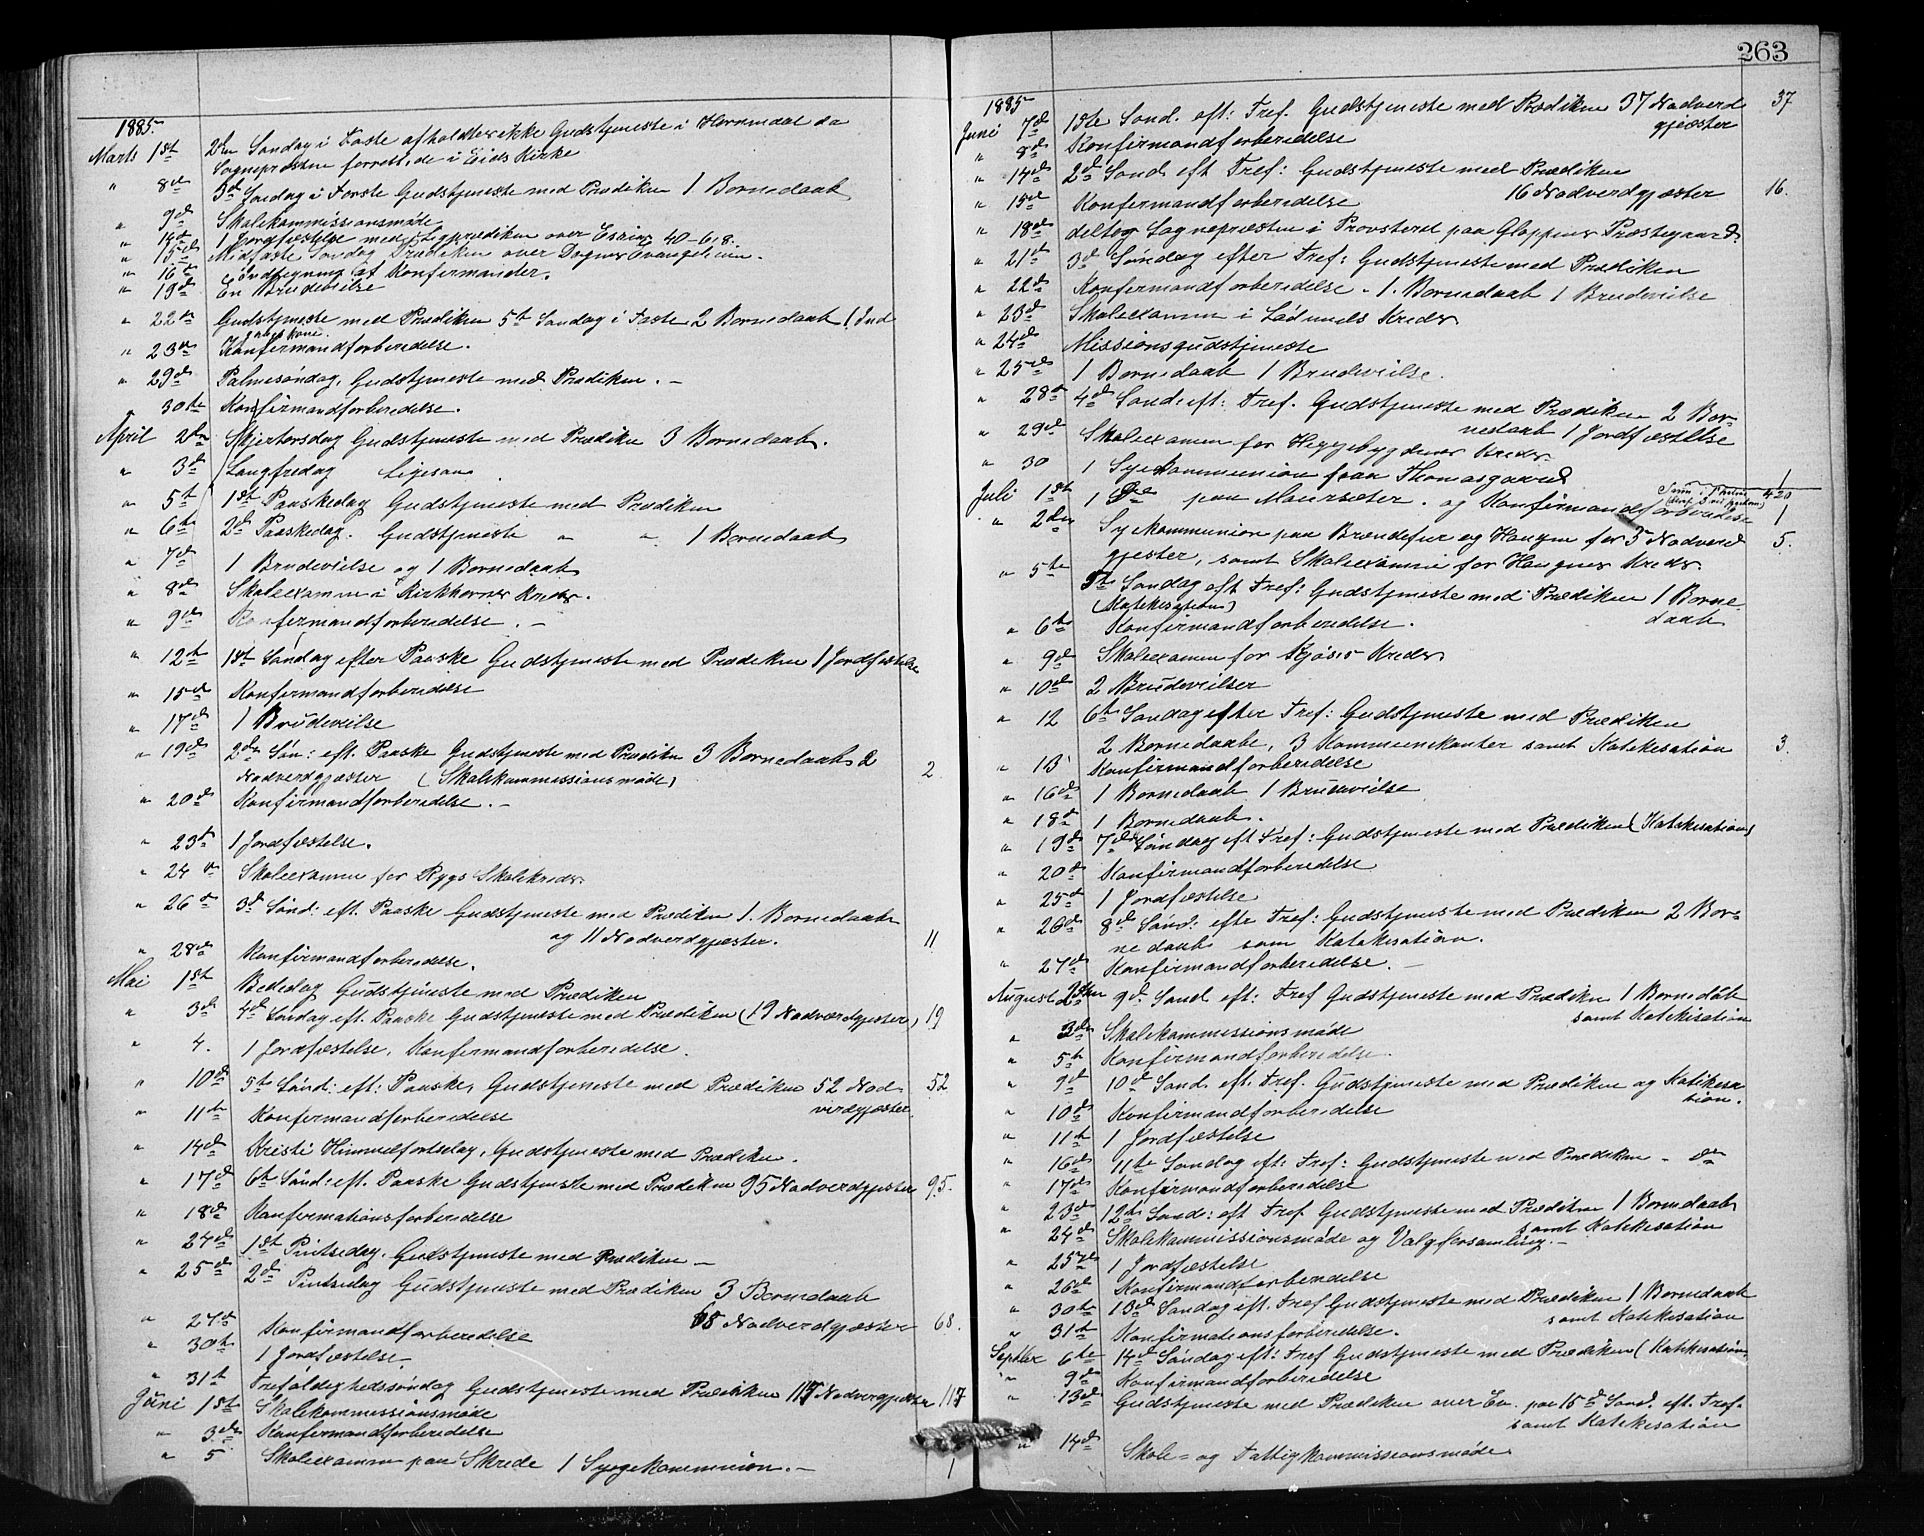 1885
Marts 1st 2den Søndag i Faste afholdtes ikke Gudstjeneste i Hornindal da
Sognepresten forrettede i Eids Kirke
" 8de 3de Søndag i Faste Gudstjeneste med Prædiken 1 Barnedaab
" 9de Skolekommissionsmøde
" 14de 1 Jordfæstelse med Ligprædiken over Esaias 40-6,8.
" 15de Midfaste Søndag Prædiken over Dagens Evangelium.
" 16de Indtegning af Konfirmander.
" 19de En Brudevielse
" 22de Gudstjeneste med Prædiken 5te Søndag i Faste 2 Barnedaab 1 Ind
" 23de Konfirmandforberedelse.
" 29de Palmesøndag, Gudstjeneste med Prædiken. –
" 30te Konfirmandforberedelse.
April 2den Skjertorsdag Gudstjeneste med Prædiken 3 Barnedaab.
" 3de Langfredag Ligesaa
" 5te 1ste Paaskedag Gudstjeneste med Prædiken
" 6te 2den Paaskedag. Gudstjeneste " " 1 Barnedaab
" 7de 1 Brudevielse og 1 Barnedaab
" 8de Skoleexamen i Kirkhorns Kreds.
" 9de Konfirmandforberedelse. –
" 12te 1ste Søndag efter Paaske Gudstjeneste med Prædiken 1 Jordfæstelse
" 15de Konfirmandforberedelse
" 17de 1 Brudevielse
" 19de 2den Søn: eft. Paaske Gudstjeneste med Prædiken 3 Barnedaab 2
Nadverdgjester (Skolekommissionsmøde) 2
" 20de Konfirmandforberedelse. –
" 23de 1 Jordfæstelse.
" 24de Skoleexamen for Rygs Skolekreds.
" 26de 3de Sønd: eft. Paaske Gudstjeneste med Prædiken 1 Barnedaab
og 11 Nadverdgjæster. 11
" 28de Konfirmandforberedelse.
Mai 1ste Bededag Gudstjeneste med Prædiken
" 3de 4de Søndag eft. Paaske Gudstjeneste med Prædiken (19 Nadverdgjester) 19
" 4. 1 Jordfæstelse, Konfirmandforberedelse.
" 10de 5te Sønd: eft: Paaske, Gudstjeneste med Prædiken 52 Nad-
verdgjester 52
" 11te Konfirmandforberedelse
" 14de Kristi Himmelfartsdag, Gudstjeneste med Prædiken.
" 17de 6te Sønd: eft. Paaske Gudstjeneste med Prædiken 95 Nadverdgjester 95.
" 18de Konfirmationsforberedelse
" 24de 1ste Pintsedag, Gudstjeneste med Prædiken –
" 25de 2de Pintsedag Gudstjeneste med Prædiken 3 Barnedaab
68 Nadverdgjæster 68.
" 27de Konfirmandforberedelse
" 30te 1 Jordfæstelse
" 31te Trefoldighedssøndag Gudstjeneste med Prædiken 117 Nadverdgjester 117
Juni 1ste Skolekommissionsmøde
" 3de Konfirmandforberedelse
" 5 Skoleexamen paa Skrede 1 Sygekommunion. – 1
263
1885
Juni 7de 1ste Sønd. eft: Tref. Gudstjeneste med Prædiken 37 Nadverd
gjæster 37
" 8de Konfirmandforberedelse
" 14de 2de Sønd eft Tref: Gudstjeneste med Prædiken
16 Nadverdgjæster 16.
" 15de Konfirmandforberedelse
" 18de deltog Sognepresten i Provsteret paa Gloppens Præstegaard
" 21de 3de Søndag efter Tref: Gudstjeneste med Prædiken
" 22de Konfirmandforberedelse. 1 Barnedaab 1 Brudevielse
" 23de Skoleexamen i Lødemels Kreds
" 24de Missionsgudstjeneste
" 25de 1 Barnedaab 1 Brudevielse.
" 28de 4de Sønd: eft: Tref. Gudstjeneste med Prædiken 2 Bar-
nedaab 1 Jordfæstelse
" 29de Skoleexamen for Heggebygdens Kreds
" 30 1 Sygekommunion paa Thomasgaard 1
Juli 1ste 1 Do paa Maursæter. og Konfirmandforberedelse 1
" 2den Sygekommunion paa Brændefur og Haugen for 5 Nadverd
gjester, samt Skoleexamen for Haugens Kreds 5.
" 5te 5te Søndag eft Tref: Gudstjeneste med Prædiken 1 Barne
(Katekisation) daab
" 6te Konfirmandforberedelse.
" 9de Skoleexamen for Kjøsis Kreds
" 10de 2 Brudevielser
" 12 6te Søndag efter Tref: Gudstjeneste med Prædiken
2 Barnedaabe, 3 Kommunikanter samt Katekisation 3.
" 13 Konfirmandforberedelse
" 16de 1 Barnedaab 1 Brudevielse
" 18de 1 Barnedaab.
" 19de 7de Søndag eft Tref: Gudstjeneste med Prædiken (Katekisation)
" 20de Konfirmandforberedelse
" 25de 1 Jordfæstelse
" 26de 8de Sønd: efte Tref: Gudstjeneste med Prædiken 2 Bar-
nedaab som Katekisation.
" 27de Konfirmandforberedelse. –
August 2den 9de Sønd eft: Tref Gudstjeneste med Prædiken 1 Barnedaab
samt Katekisation
" 3de Skolekommissionsmøde
" 5te Konfirmandforberedelse.
" 9de 10de Sønd. eft. Tref. Gudstjeneste med Prædiken og Katekisa-
tion.
" 10de Konfirmandforberedelse
" 11te 1 Jordfæstelse
" 16de 11te Søndag eft: Tref: Gudstjeneste med Prædiken – Do
" 17de Konfirmandforberedelse
" 23de 12te Sønd: eft Tref Gudstjeneste med Prædiken 1 Barnedaab
samt Katekisation
" 24de Skolekommissionsmøde og Valgforsamling. –
" 25de 1 Jordfæstelse
" 26de Konfirmandforberedelse
" 30te 13de Søndag eft. Tref Gudstjeneste med Prædiken 1 Barnedaab
samt Katekisation
" 31te Konfirmationsforberedelse.
Septbr 6te 14de Søndag eft: Tref Gudstjeneste med Prædiken (Katekisation)
" 9de Konfirmandforberedelse
" 13de Gudstjeneste med Prædiken over Ev. paa 15de Sønd. eft. Tref.
samt Katekisation
" 14de Skole- og Fattigkommissionsmøde